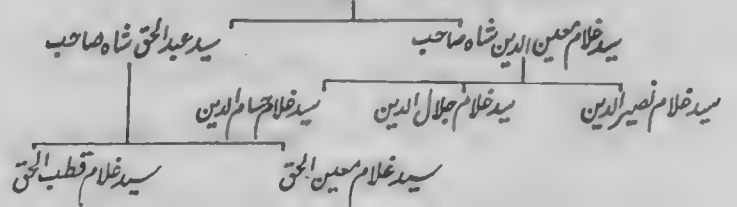 سید غلام معین الدین شاہ صاحب سید عبدالحق شاہ صاحب
سید غلام نصیر الدین سید غلام جلال الدین سید غلام حسام الدین
سید غلام معین الحق سید غلام قطب الحق